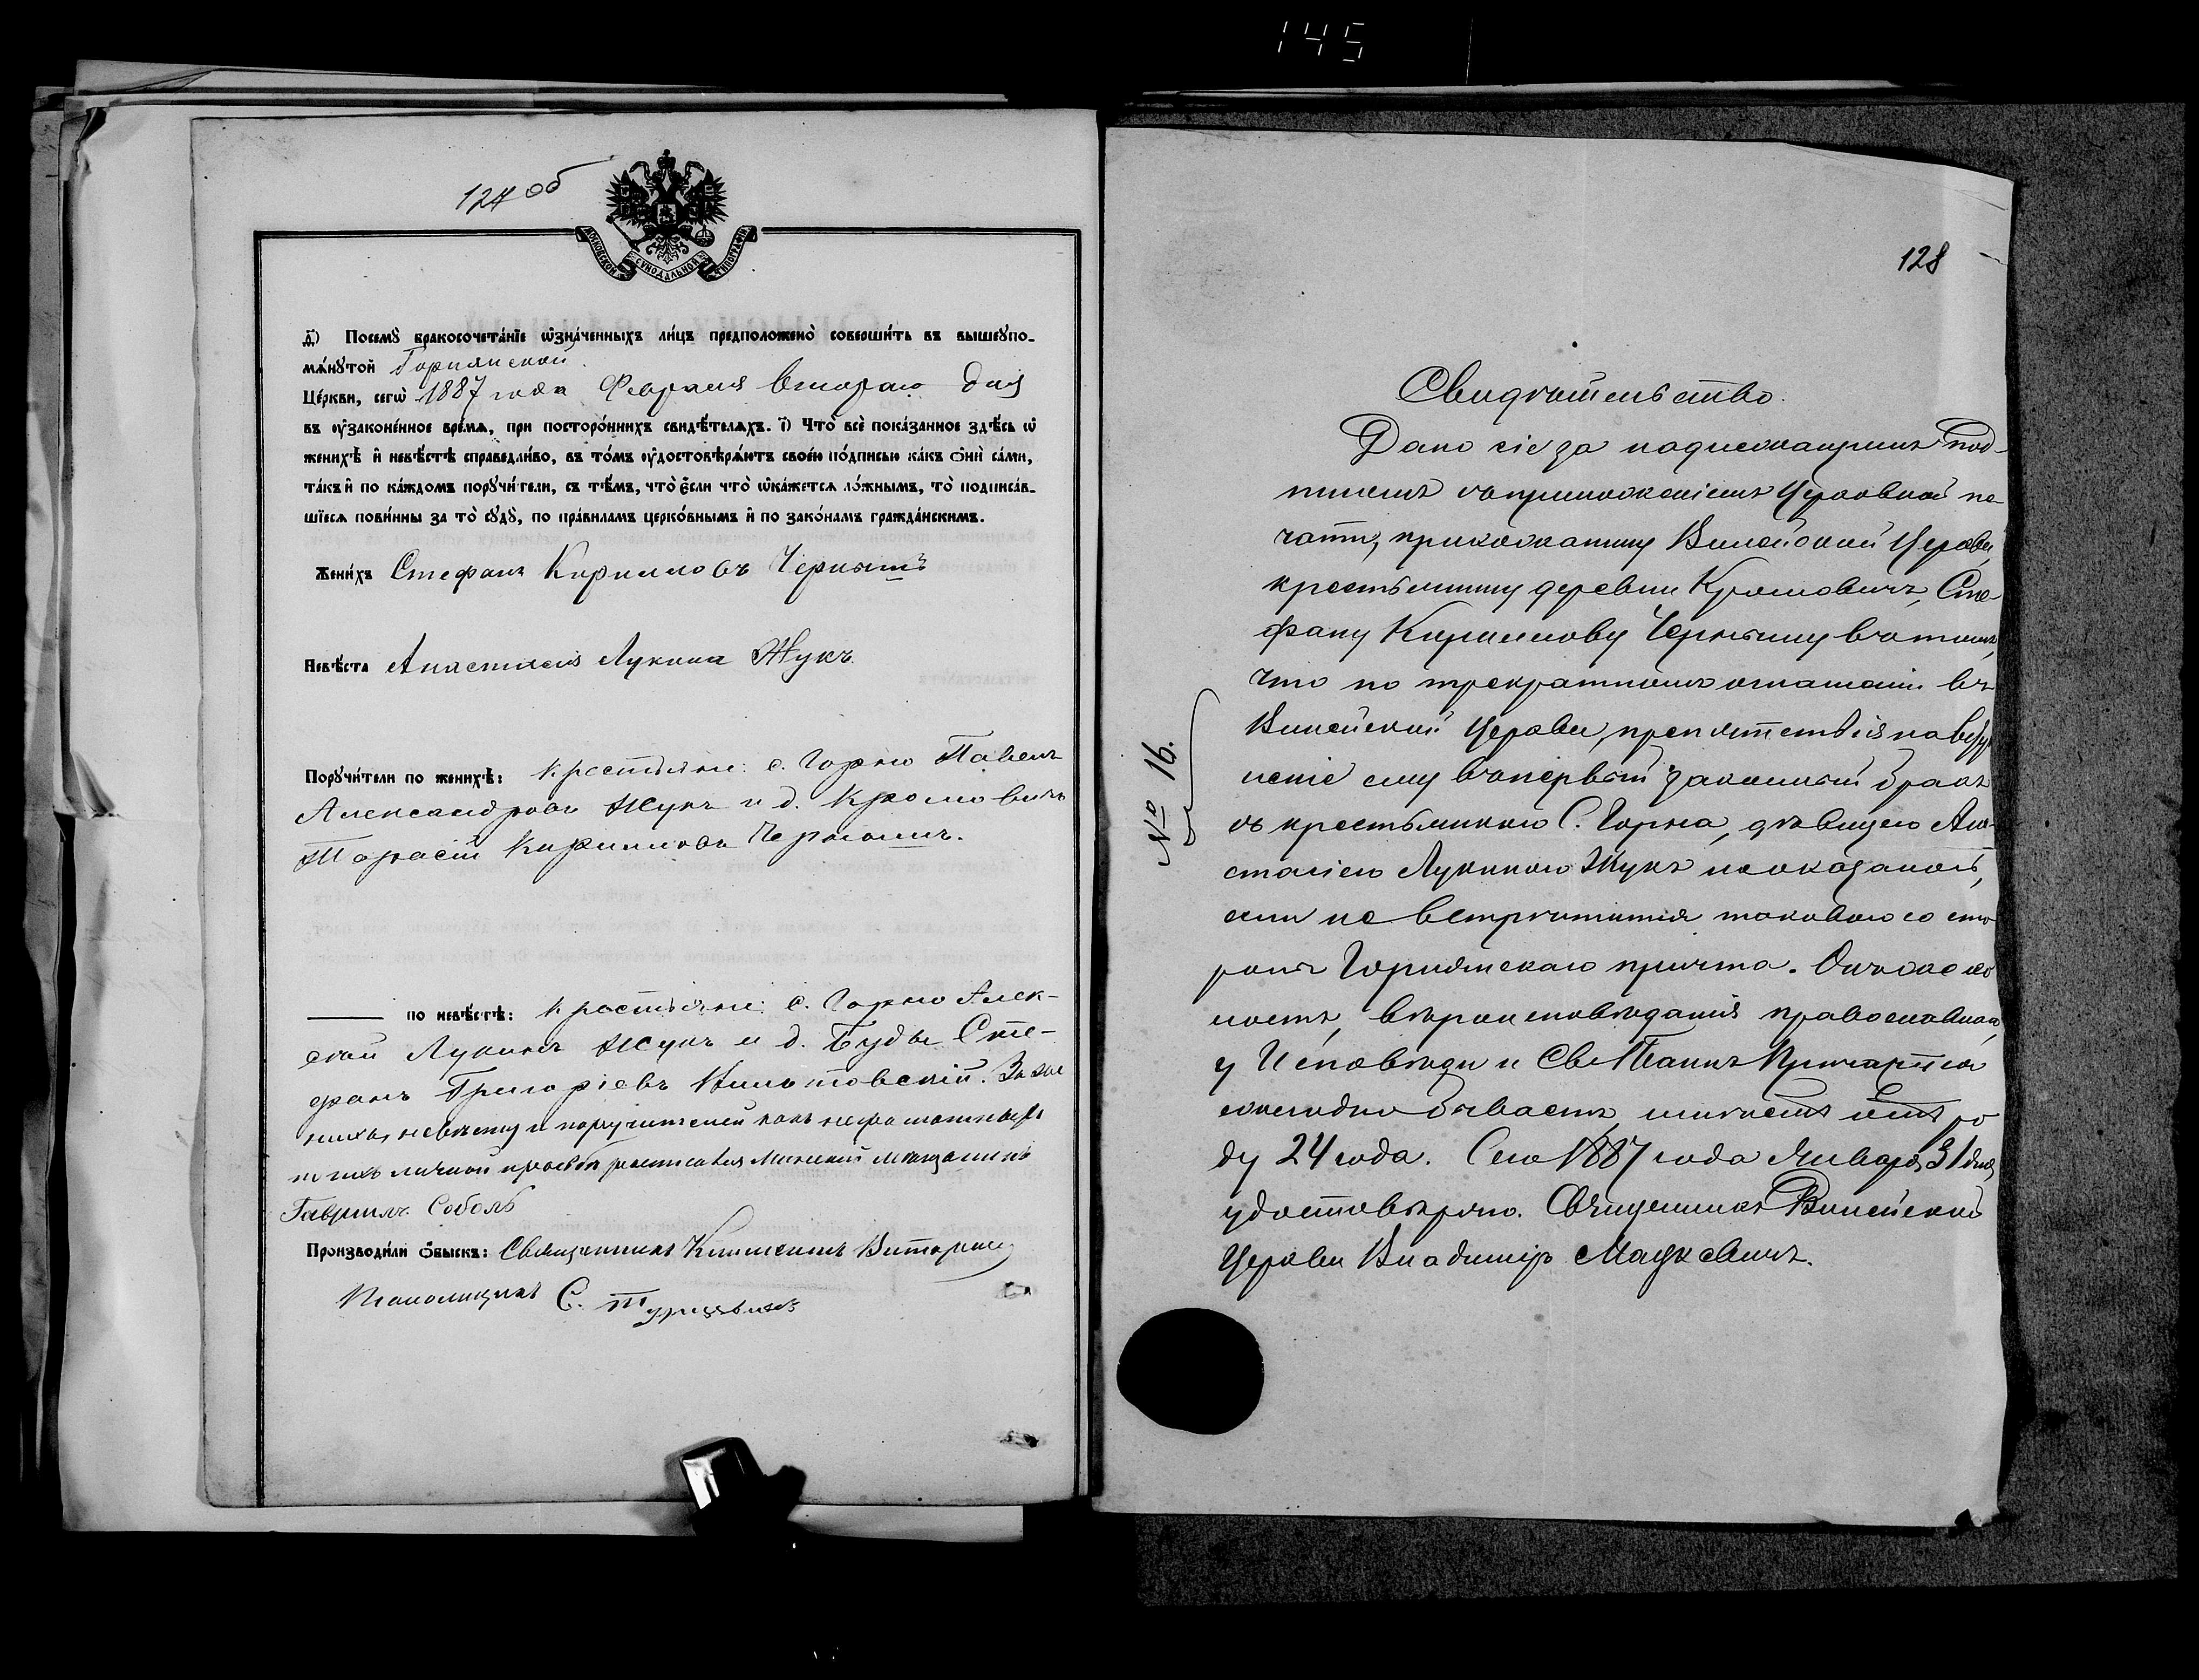 145
127 об
МОСКОВСКОЙ СУНОДАЛЬНОЙ ТИПОГРАФІИ
д҃і) Посемꙋ̀ бракосочета́нїе ѡ҆зна́ченныхъ ли́цъ предположено̀ соверши́ть въ вышеꙋпо-
мѧ́нꙋтой Горнянской
Це́ркви, сегѡ̀ 1887 года Февраля втораго дня
въ ᲂу҆законе́нное вре́мѧ, при посторо́ннихъ свидѣ́телѧхъ. і҃) Что̀ всѐ пока́занное здѣ́сь ѡ҆
женихѣ̀ и҆ невѣ́стѣ справедли́во, въ то́мъ ᲂу҆достовѣрѧ́ютъ свое́ю по́дписью ка́къ ѻ҆нѝ са́ми,
та́къ и҆ по ка́ждомъ порꙋчи́тели, съ тѣ́мъ, что̀ є҆́сли что̀ ѡ҆ка́жетсѧ ло́жнымъ, то̀ подписа́в-
шїесѧ пови́нны за то̀ сꙋдꙋ̀, по пра́виламъ церко́внымъ и҆ по зако́намъ гражда́нскимъ.
Жени́хъ Стефанъ Кирилловъ Чернышъ
Невѣ́ста Анастасія Лукина Жукъ
Порꙋчи́тели по женихѣ̀: крестьяне: с. Горно Павелъ
Александровъ Жукъ и д. Кромовичъ
Тарасій Кирилловъ Чернышъ.
по невѣ́стѣ: крестьяне: с. Горно Алек-
сѣй Лукинъ Жукъ и д. Буды Сте-
фанъ Григоріевъ За же
ниха, невѣсту и поручителей какъ неграмотныхъ
по ихъ личной просьбѣ росписался Минскій мѣщанинъ
Гавріилъ Соболь
Производи́ли ѻ҆́быскъ: Священникъ Климентъ
Псаломщикъ С.
128
Свидѣтельство.
Дано сіе за надлежащимъ под-
писемъ съ приложеніемъ Церковной пе-
чати, прихожанину Вилейской Церкви,
крестьянину деревни Кромовичъ, Сте-
фану Кириллову Чернышу въ томъ,
что по трекратномъ оглашеніи въ
Вилейской Церкви, препятствія на всту-
пленіе ему въ первый законный бракъ
съ крестьянкою С. Горна, дѣвицею Ана-
стасіею Лукиною Жукъ не оказалось,
если не встрѣтится таковаго со сто-
роны Горнянскаго причта. Онъ же
вѣроисповѣданія православнаго,
у Исповѣди и Св. Таинъ Причастія
ежегодно бываетъ, имѣетъ отъ ро-
ду 24 года. Сего 1887 года Января 31 дня
удостовѣряю. Священникъ Вилейской
Церкви Владиміръ Мацкевичъ.
№ 16.